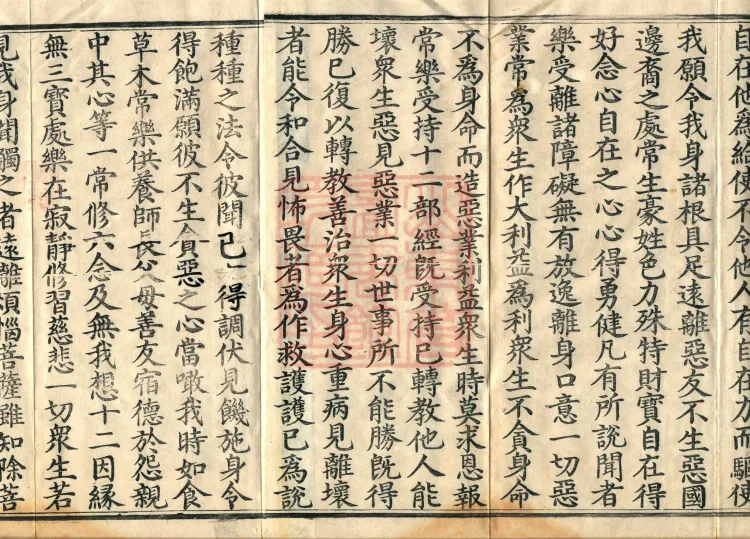 自在他為給使不令他人有自在力而驅使
我願令我身諸根具足遠離惡友不生惡國
邊裔之處常生豪姓色力殊特財寶自在得
好念心自在之心心得勇健凡有所說聞者
樂受離諸障礙無有放逸離身口意一切惡
業常為眾生作大利益為利眾生不貪身命
不為身命而造惡業利益眾生時莫求恩報
常樂受持十二部經既受持已轉教他人能
壞眾生惡見惡業一切世事所不能勝既得
勝已復以轉教善治眾生身心重病見離壞
者能令和合見怖畏者為作救護護已為說
種種之法令彼聞已得調伏見饑施身令
得飽滿願彼不生貪惡之心當噉我時如食
草木常樂供養師長父母善友宿德於怨親
中其心等一常修六念及無我想十二因緣
無三寶處樂在寂靜修習慈悲一切眾生若
見我身聞觸之者遠離煩惱菩薩雖知除菩